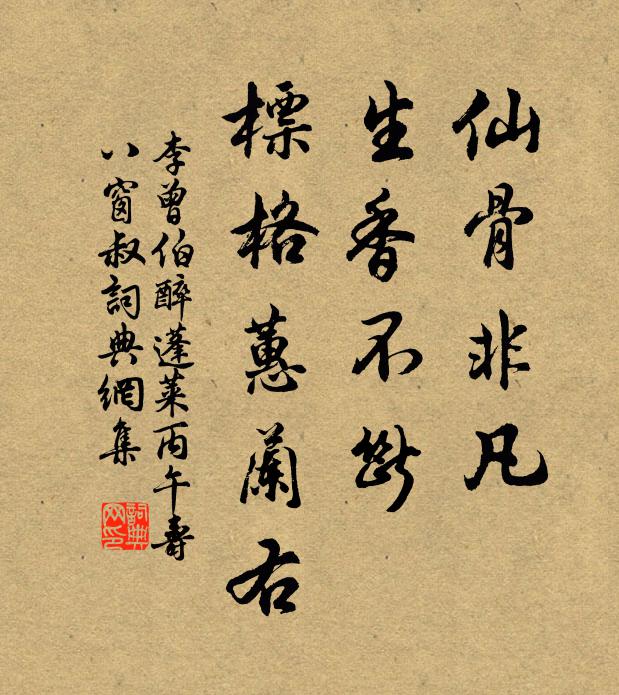 仙骨非凡
生香不断
標格蕙蘭右
李曾伯醉蓬萊丙午壽
八窗叔詞典網集
詞典
网印